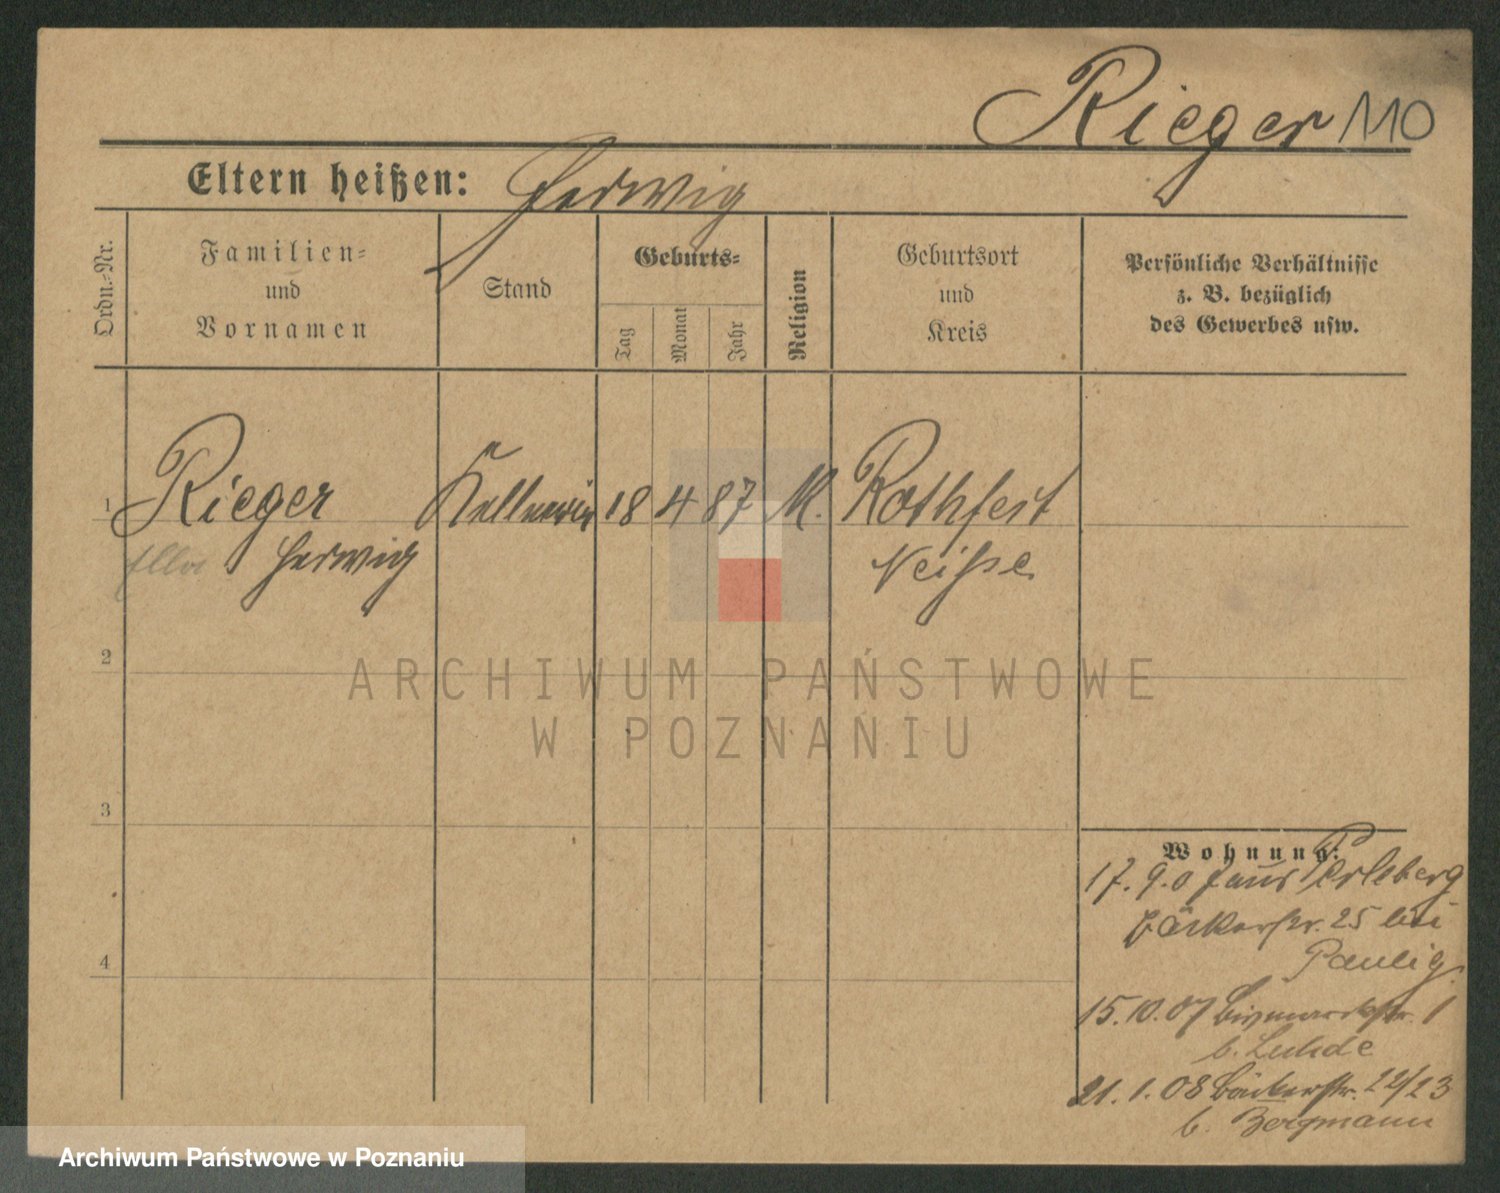 Rieger 110
Eltern heißen: Hedwig
Ordn.-Nr.
Familien-
und
Vornamen
Stand
Geburts-
Tag
Monat
Jahr
Religion
Geburtsort
und
Kreis
Persönliche Verhältnisse
z. B. bezüglich
des Gewerbes usw.
1 Rieger Kellnerin 18 4 87 K. Rothfest
Ella Hedwig Neisse
2
3
4
Wohnung:
17.9.07 aus Perleberg
Bäckerstr. 25 bei
Paulig
15.10.07 Bismarckstr. 1
b. Luhde
21.1.08 Bäckerstr. 22/23
b. Bergmann
ARCHIWUM PAŃSTWOWE
W POZNANIU
Archiwum Państwowe w Poznaniu